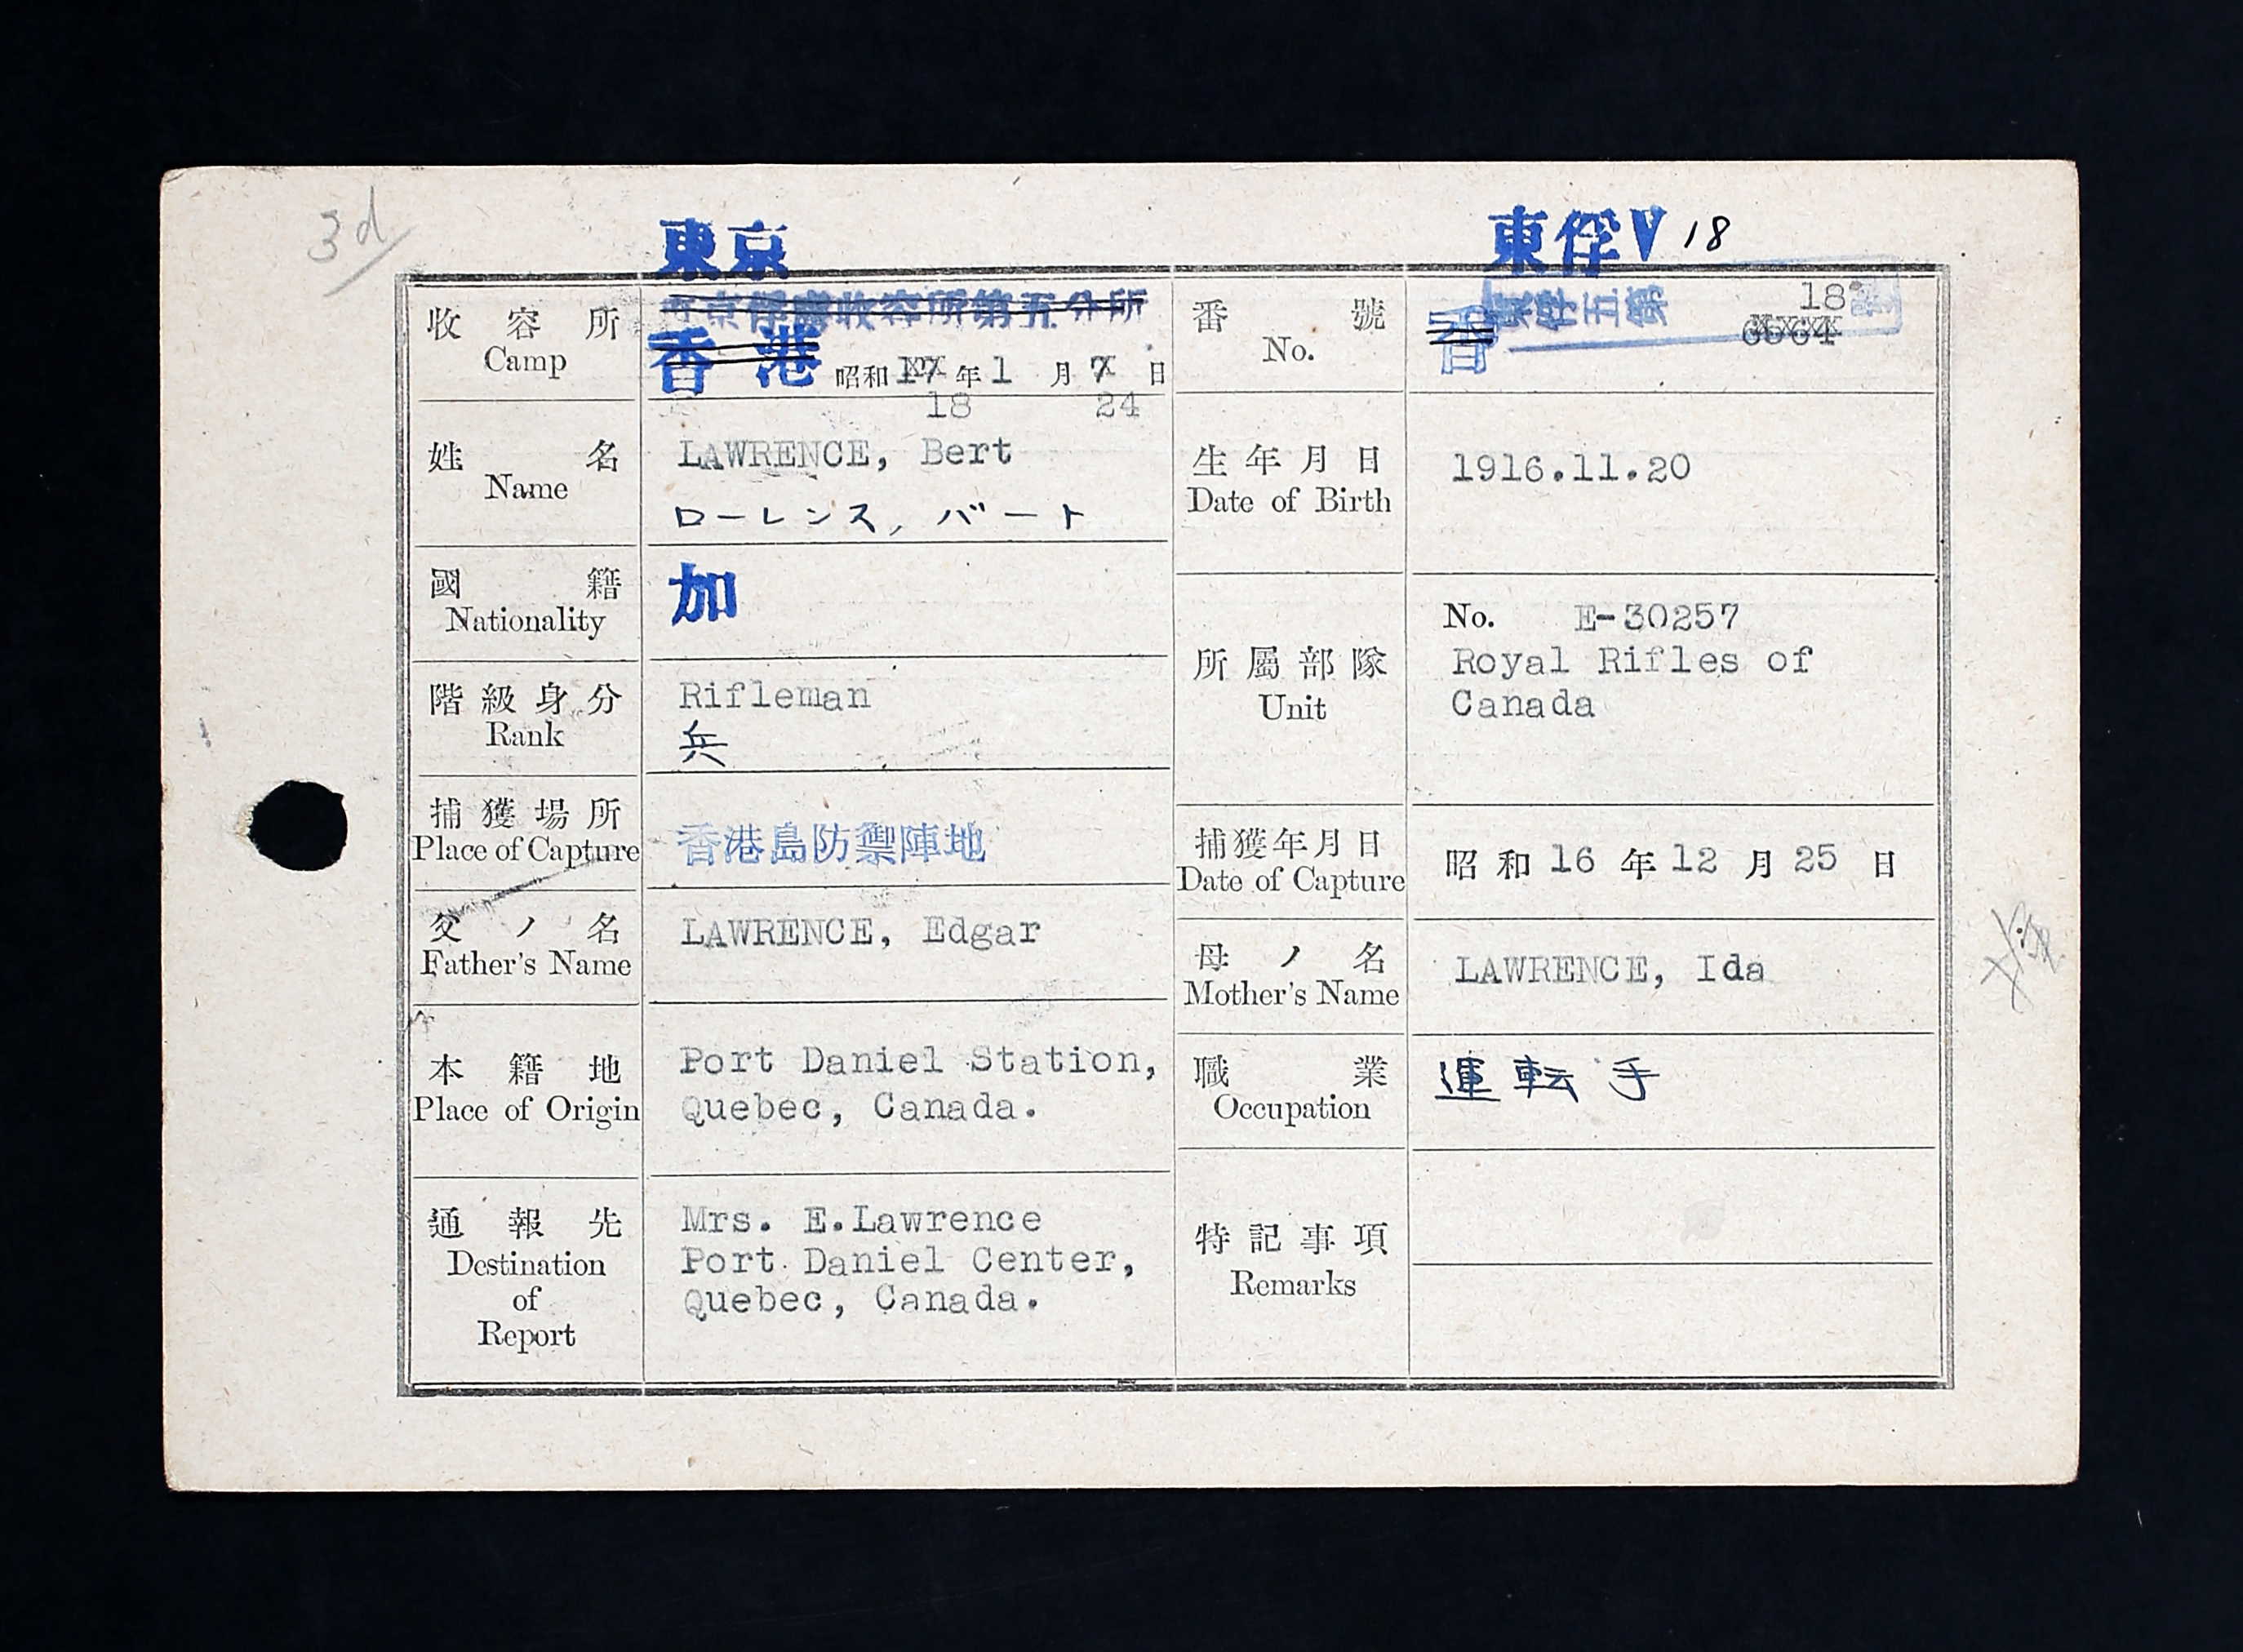 3d
東京
東俘V 18
收容所
Camp
東京俘虜收容所第五分所
香港
昭和17年1月7日
18 24
番號
No.
香
東俘五第 18 號
6564
姓名
Name
LAWRENCE, Bert
ローレンス, バート
生年月日
Date of Birth
1916.11.20
國籍
Nationality
加
所屬部隊
Unit
No. E-30257
Royal Rifles of
Canada
階級身分
Rank
Rifleman
兵
捕獲場所
Place of Capture
香港島防禦陣地
捕獲年月日
Date of Capture
昭和16年12月25日
父ノ名
Father's Name
LAWRENCE, Edgar
母ノ名
Mother's Name
LAWRENCE, Ida
本籍地
Place of Origin
Port Daniel Station,
Quebec, Canada.
職業
Occupation
運転手
通報先
Destination
of
Report
Mrs. E.Lawrence
Port Daniel Center,
Quebec, Canada.
特記事項
Remarks